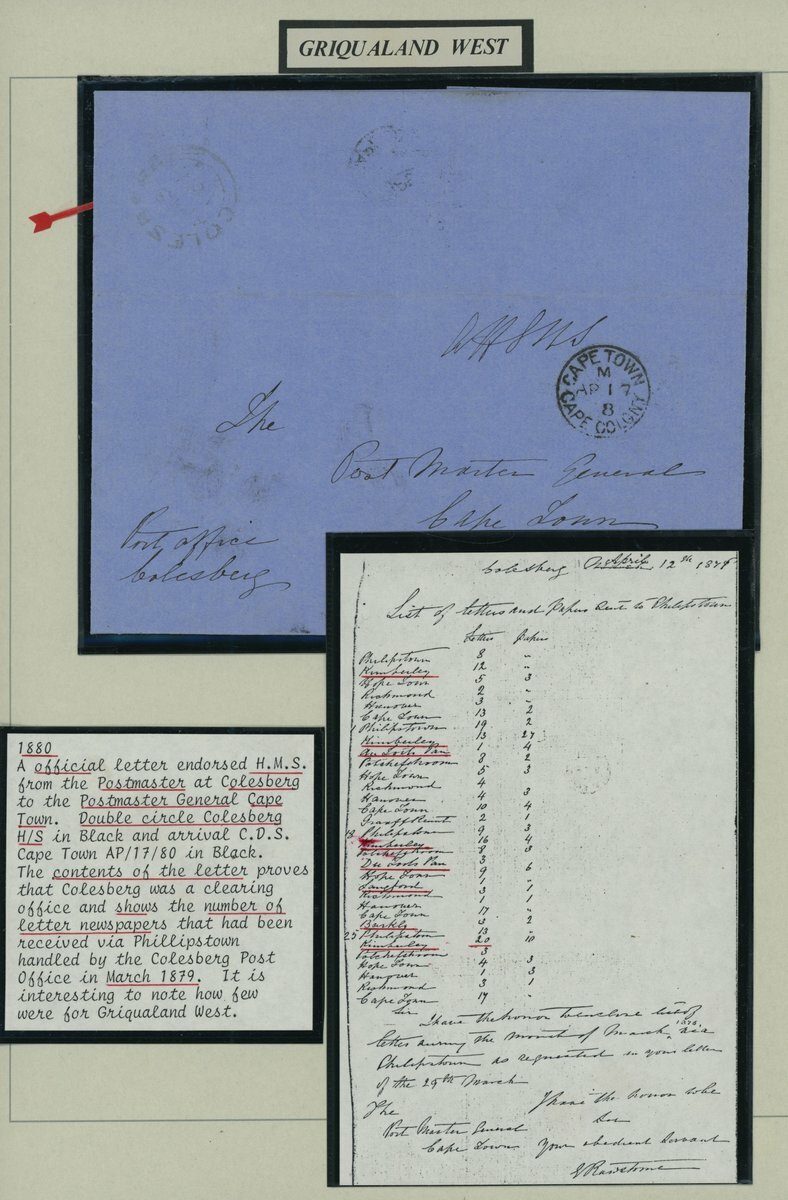 GRIQUALAND WEST
CAPE TOWN
M
AP 17
8
CAPE COLONY
The
Post Master General
Cape Town
Post office
Colesberg
1880
A official letter endorsed H.M.S.
from the Postmaster at Colesberg
to the Postmaster General Cape
Town. Double circle Colesberg
H/S in Black and arrival C.D.S.
Cape Town AP/17/80 in Black.
The contents of the letter proves
that Colesberg was a clearing
office and shows the number of
letter newspapers that had been
received via Phillipstown
handled by the Colesberg Post
Office in March 1879. It is
interesting to note how few
were for Griqualand West.
Colesberg April 12th
List of letters and Papers sent to Philipstown
Letters Papers
Philipstown 8 "
Kimberley 12 "
Hope Town 5 3
Richmond 2 "
Hanover 3 "
Cape Town 13 2
1 Philipstown 19 2
Kimberley 13 27
Du Toits Pan 1 4
Potchefstroom 8 2
Hope Town 5 3
Richmond 4
Hanover 4 3
Cape Town 10 4
Graaff Reinet 2 1
Philipstown 9 3
Kimberley 16 4
Potchefstroom 8 3
Du Toits Pan 3
Hope Town 9 6
Langford
Richmond 3 1
Hanover 1 1
Cape Town 17 "
Barkly 3 2
25 Philipstown 13 "
Kimberley 20 10
Potchefstroom 3
Hope Town 4 3
Hanover 1 3
Richmond 3 1
Cape Town 17 "
Sir
I have the honor to enclose list of
letter during the month of March
Philipstown as requested in your letter
of the 29th March
I have the honor to be
The Sir
Post Master General
Cape Town Your obedient Servant